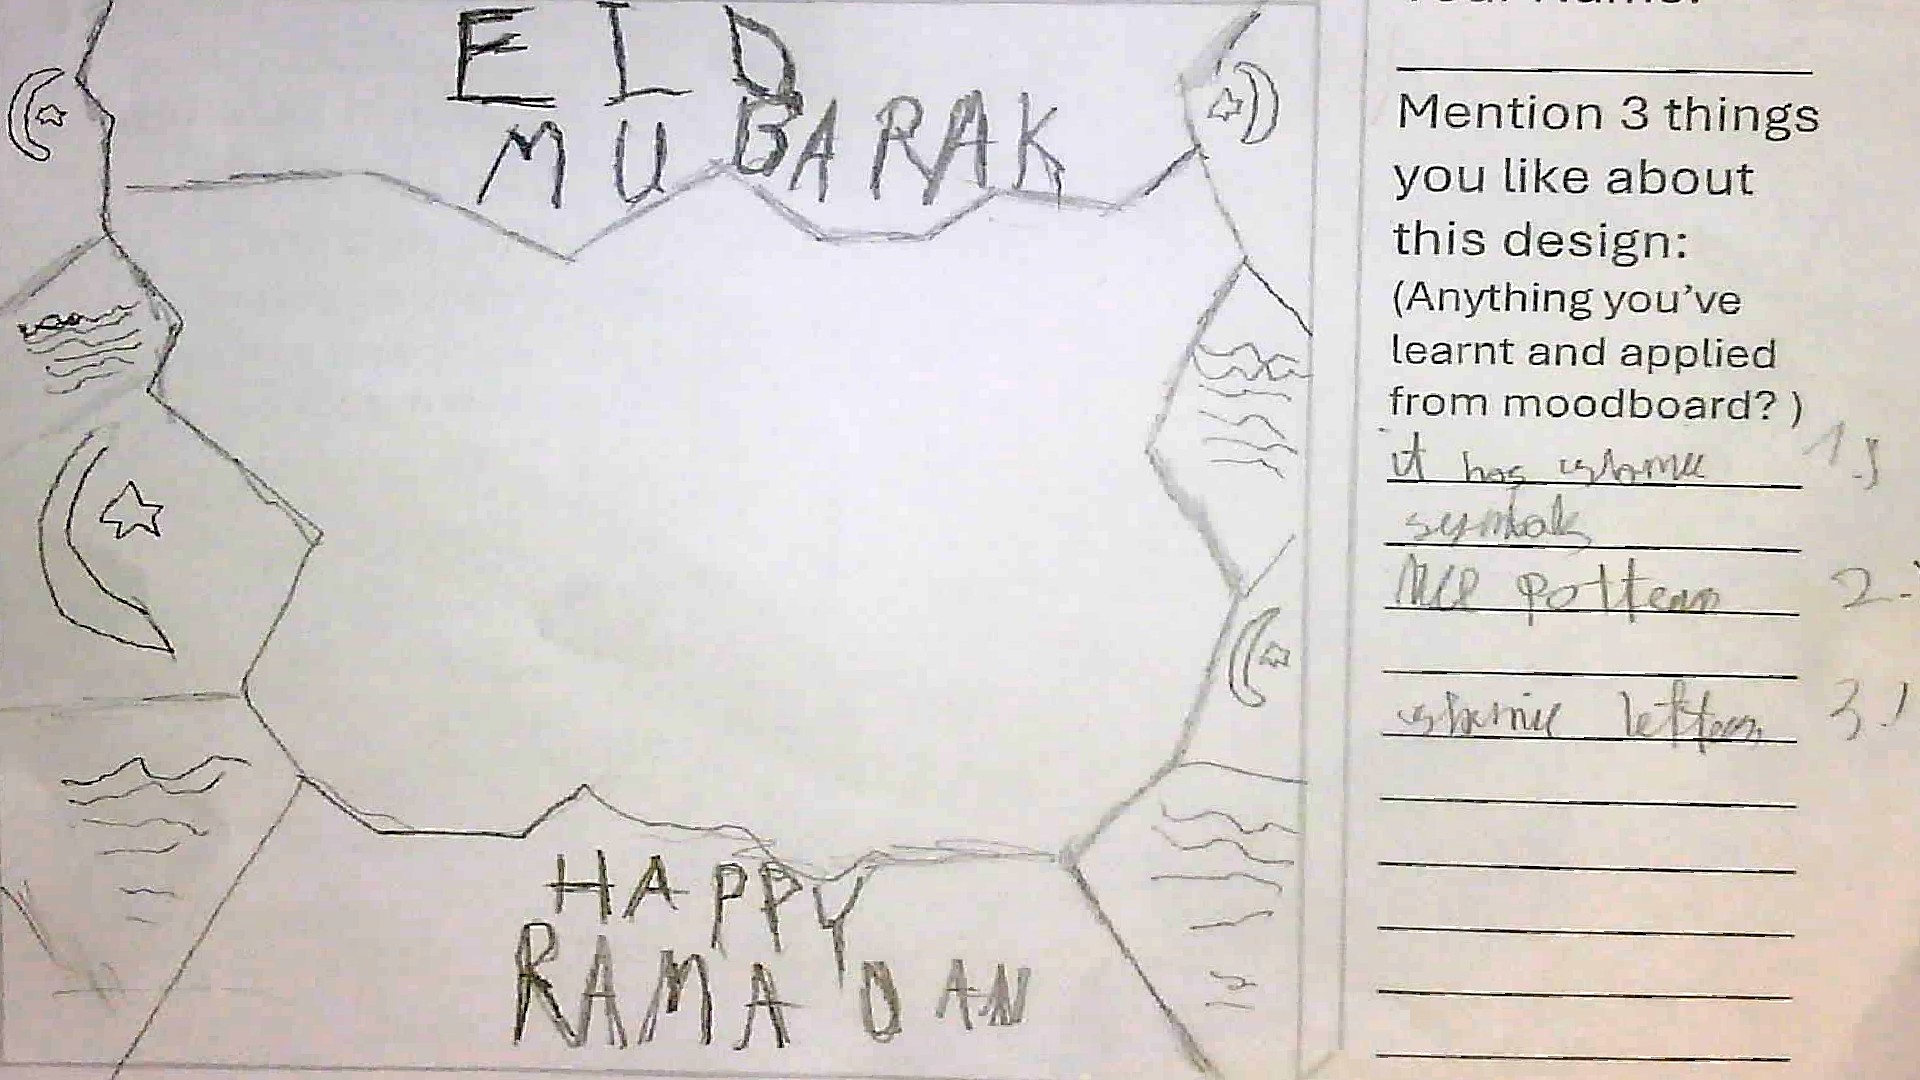 EID
MUBARAK
HAPPY
RAMADAN
Mention 3 things
you like about
this design:
(Anything you've
learnt and applied
from moodboard? )
it has islamic 1.
symbols
Nice pattern 2.
islamic letters 3.